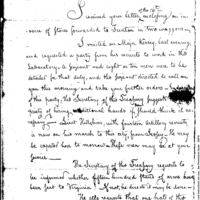 of the 14th
I received your letter enclosing an in-
voice of stores forwarded to Trenton in two waggons
I waited on Major Kersey last evening,
and requested a party from his recruits to work in this
Laboratory. A Serjeant and eight or ten men were to be
detailed for that duty, and the Serjeant directed to call on
you this morning and take your further orders.
of this party, the Secretary of the Treasury suggests the
of hiring additional hands if should think it ne-
cessary. Lieut with fourteen artillery recruits
is now on his march to this city from He may
be expected here to morrow. These men may be at your
service.
The Secretary of the Treasury requests to
be informed whether fifteen hundred stands of arms have
been sent to Virginia? If not, he directs it may be done.
He also requests that one half of this